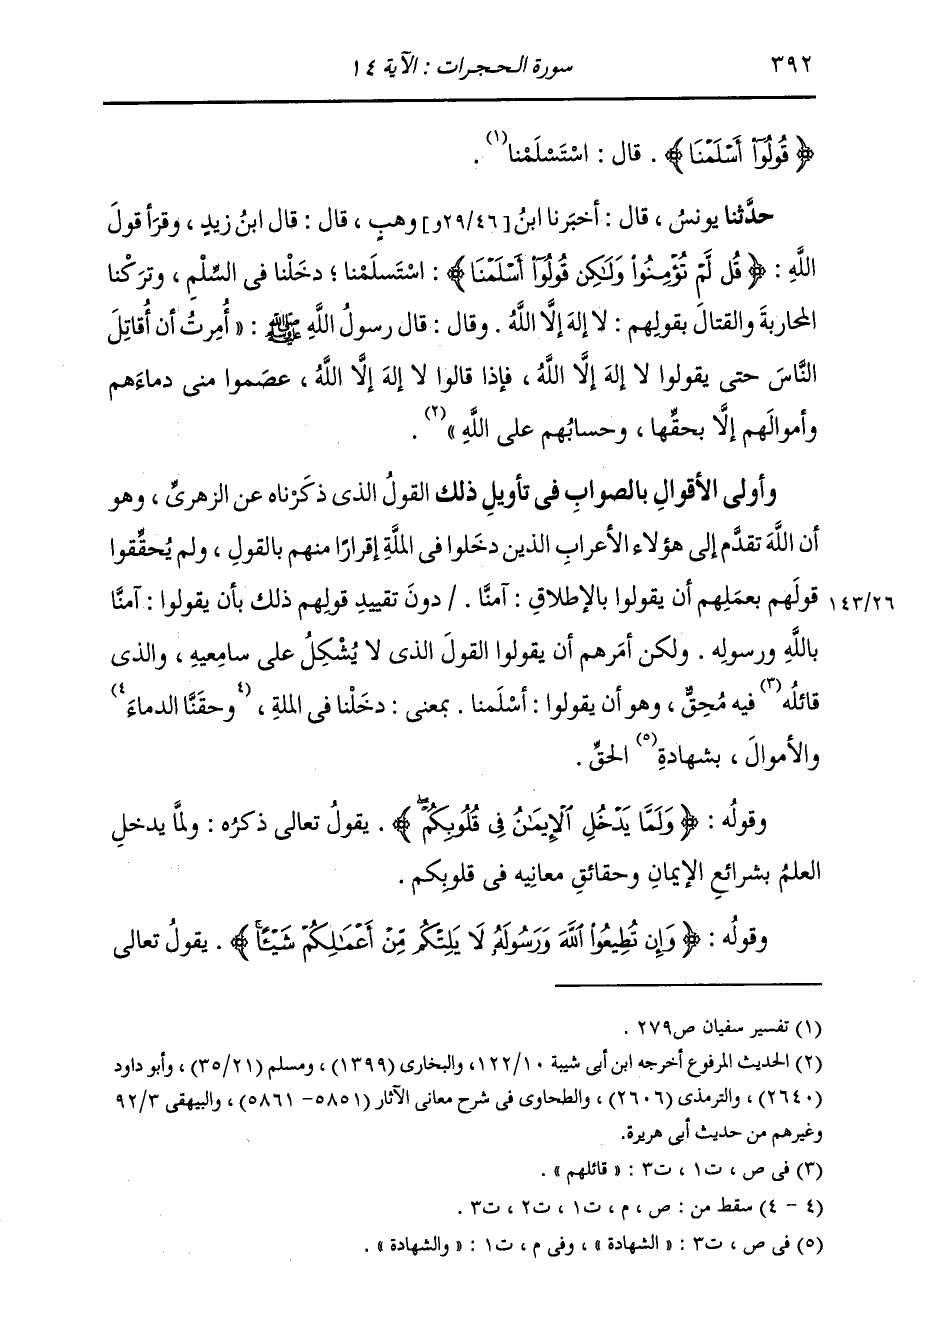 ٣٩٢ سورة الحجرات : الآية ١٤
﴿ قُولُوٓا۟ أَسْلَمْنَا ﴾ . قال : اسْتَسْلَمْنا(١) .
حدَّثنا يونسُ ، قال : أخبَرنا ابنُ [٢٩/٤٦و] وهبٍ ، قال : قال ابنُ زيدٍ ، وقرَأ قولَ
اللَّهِ : ﴿ قُل لَّمْ تُؤْمِنُوا۟ وَلَٰكِن قُولُوٓا۟ أَسْلَمْنَا ﴾ : اسْتَسلَمْنا ؛ دخَلْنا فى السِّلْمِ ، وترَكْنا
المحاربةَ والقتالَ بقولِهم : لا إلهَ إلَّا اللَّهُ . وقال : قال رسولُ اللَّهِ ﷺ : « أُمِرتُ أن أُقاتِلَ
النَّاسَ حتى يقولوا لا إلهَ إلَّا اللَّهُ ، فإذا قالوا لا إلهَ إلَّا اللَّهُ ، عصَموا منى دماءَهم
وأموالَهم إلَّا بحقِّها ، وحسابُهم على اللَّهِ »(٢) .
وأولى الأقوالِ بالصوابِ فى تأويلِ ذلك القولُ الذى ذكَرْناه عن الزهرىِّ ، وهو
أن اللَّهَ تقدَّم إلى هؤلاء الأعرابِ الذين دخَلوا فى الملَّةِ إقرارًا منهم بالقولِ ، ولم يُحقِّقوا
قولَهم بعمَلِهم أن يقولوا بالإطلاقِ : آمنَّا . / دونَ تقييدِ قولِهم ذلك بأن يقولوا : آمنَّا ١٤٣/٢٦
باللَّهِ ورسولِه . ولكن أمَرهم أن يقولوا القولَ الذى لا يُشْكِلُ على سامعِيه ، والذى
قائلُه(٣) فيه مُحِقٌّ ، وهو أن يقولوا : أسْلَمنا . بمعنى : دخَلْنا فى الملةِ ، (٤وحقَنَّا الدماءَ٤)
والأموالَ ، بشهادةِ(٥) الحقِّ .
وقولُه : ﴿ وَلَمَّا يَدْخُلِ ٱلْإِيمَٰنُ فِى قُلُوبِكُمْ ۖ ﴾ . يقولُ تعالى ذكرُه : ولمَّا يدخلِ
العلمُ بشرائعِ الإيمانِ وحقائقِ معانِيه فى قلوبِكم .
وقولُه : ﴿ وَإِن تُطِيعُوا۟ ٱللَّهَ وَرَسُولَهُۥ لَا يَلِتْكُم مِّنْ أَعْمَٰلِكُمْ شَيْـًٔا ۚ ﴾ . يقولُ تعالى
(١) تفسير سفيان ص٢٧٩ .
(٢) الحديث المرفوع أخرجه ابن أبى شيبة ١٢٢/١٠، والبخارى (١٣٩٩) ، ومسلم (٣٥/٢١) ، وأبو داود
(٢٦٤٠) ، والترمذى (٢٦٠٦) ، والطحاوى فى شرح معانى الآثار (٥٨٥١- ٥٨٦١) ، والبيهقى ٩٢/٣
وغيرهم من حديث أبى هريرة.
(٣) فى ص ، ت١ ، ت٣ : « قائلهم » .
(٤ - ٤) سقط من : ص ، م ، ت١ ، ت٢ ، ت٣ .
(٥) فى ص ، ت٣ : « الشهادة » ، وفى م ، ت١ : « والشهادة » .